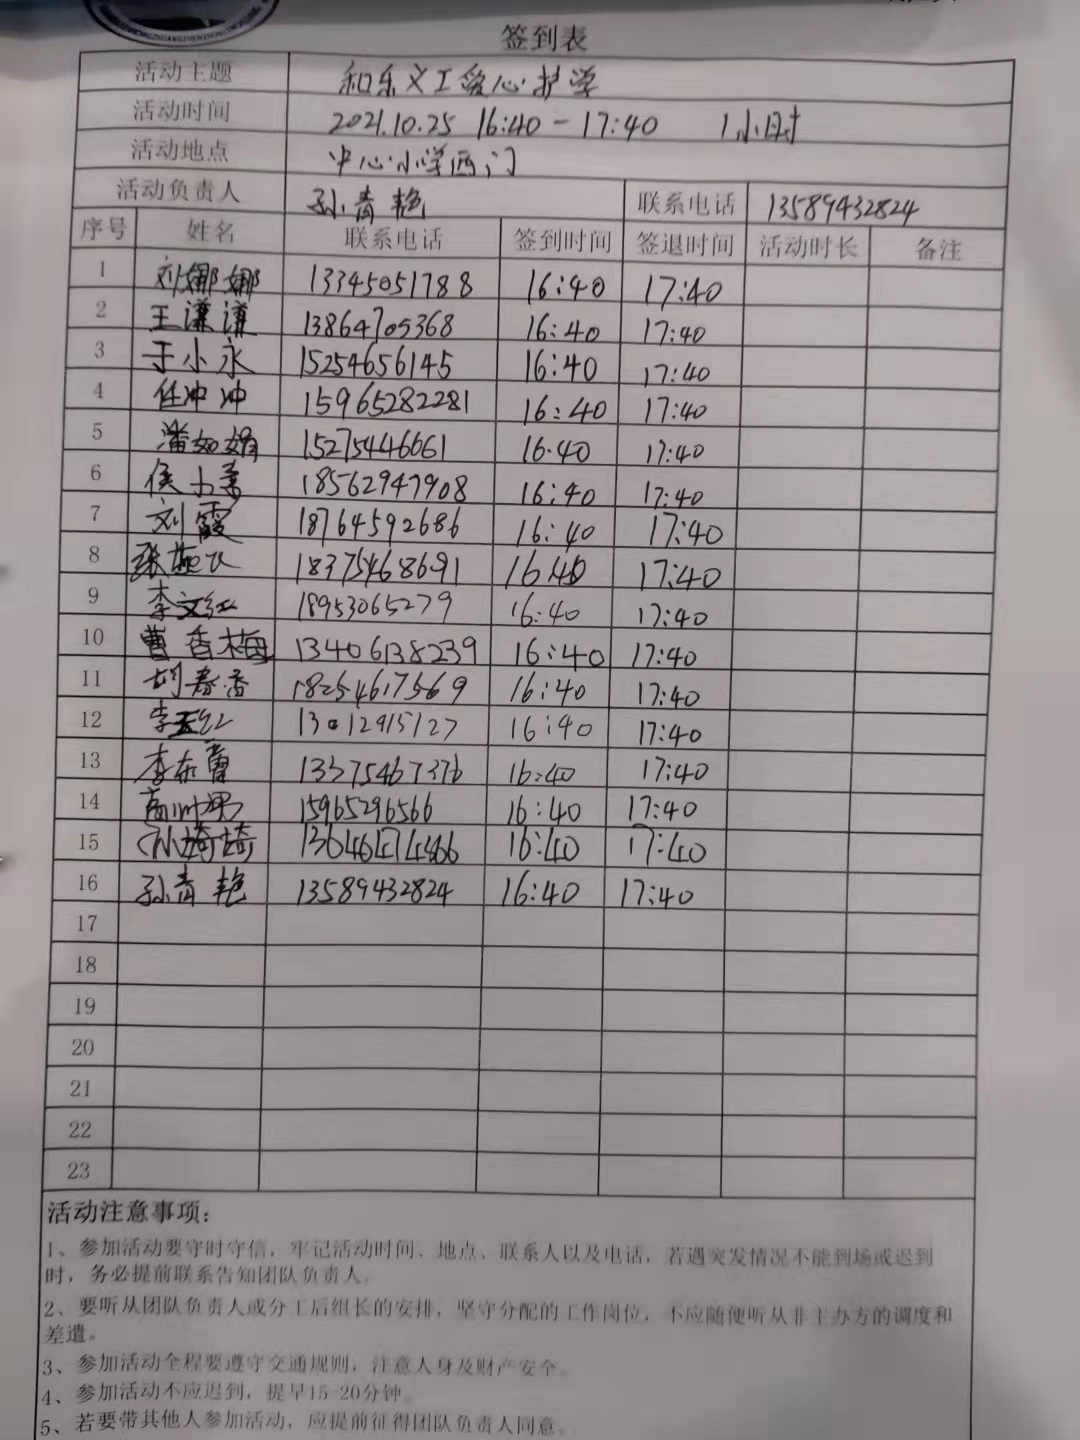 签到表
活动主题 和乐义工爱心护学
活动时间 2021.10.25 16:40-17:40 1小时
活动地点 中心小学西门
活动负责人 孙青艳 联系电话 13589432824
序号 姓名 联系电话 签到时间 签退时间 活动时长 备注
1 刘娜娜 13345051788 16:40 17:40
2 王谦谦 13864705368 16:40 17:40
3 于小永 15254656145 16:40 17:40
4 任冲冲 15965282281 16:40 17:40
5 潘如娟 15275446061 16:40 17:40
6 侯小素 18562947908 16:40 17:40
7 刘霞 18764592686 16:40 17:40
8 张燕飞 18375468691 16:40 17:40
9 李文红 18953065279 16:40 17:40
10 曹香梅 13406138239 16:40 17:40
11 胡春香 18254617569 16:40 17:40
12 李玉红 13012915127 16:40 17:40
13 李东蕾 13375467376 16:40 17:40
14 15965296566 16:40 17:40
15 孙琦琦 13646474466 16:40 17:40
16 孙青艳 13589432824 16:40 17:40
17
18
19
20
21
22
23
活动注意事项：
1、参加活动要守时守信，牢记活动时间、地点、联系人以及电话，若遇突发情况不能到场或迟到
时，务必提前联系告知团队负责人。
2、要听从团队负责人或分工后组长的安排，坚守分配的工作岗位，不应随便听从非主办方的调度和
差遣。
3、参加活动全程要遵守交通规则，注意人身及财产安全。
4、参加活动不应迟到，提早15-20分钟。
5、若要带其他人参加活动，应提前征得团队负责人同意。